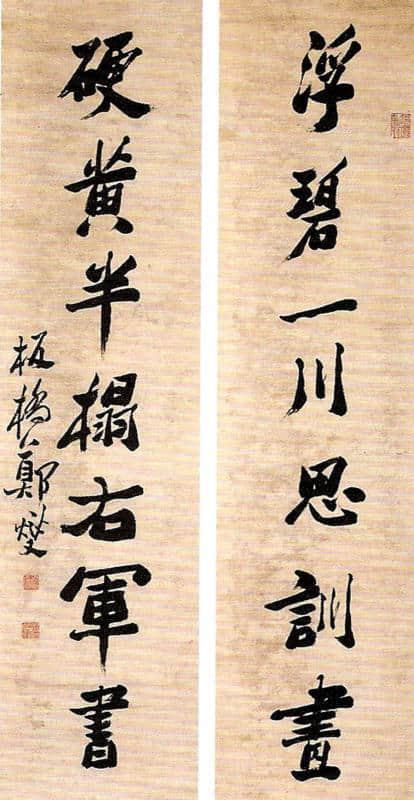 浮碧一川思訓畫
硬黃半榻右軍書
板橋鄭燮